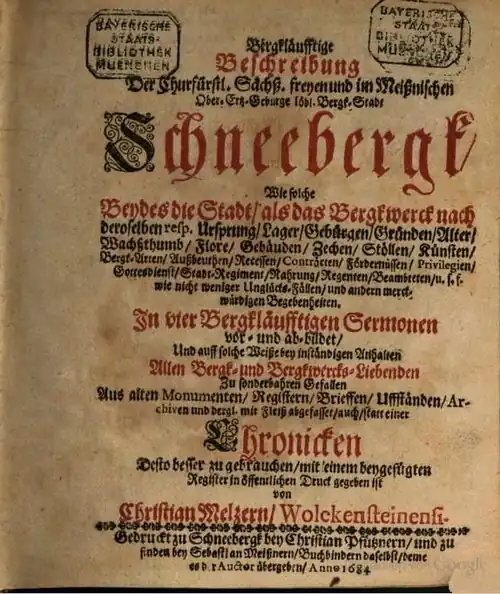 BAYERISCHE
STAATS-
BIBLIOTHEK
MUENCHEN
BAYERISCHE
STAATS-
BIBLIOTHEK
MUENCHEN
Bergkläufftige
Beschreibung
Der Churfürstl. Sächß. freyen und im Meißnischen
Ober-Ertz-Geburge löbl. Bergk-Stadt
Schneebergk/
Wie solche
Beydes die Stadt/ als das Bergkwerck nach
deroselben resp. Ursprung/Lager/Gebürgen/Gründen/Alter/
Wachßthumb/ Flore/ Gebäuden/ Zechen/ Stöllen/ Künsten/
Bergk-Arten/ Außbeuthen/Recessen/Contracten/ Fördernüssen/ Privilegien/
Gottesdienst/ Stadt-Regiment/Nahrung/Regenten/Beambteten/ u. s. f.
wie nicht weniger Unglücks-Fällen/ und andern merck-
würdigen Begebenheiten.
In vier Bergkläufftigen Sermonen
vor- und ab-bildet/
Und auff solche Weiße bey inständigen Anhalten
Allen Bergk- und Bergkwercks-Liebenden
Zu sonderbahren Gefallen
Aus alten Monumenten/ Registern/ Brieffen/ Uffständen/Ar-
chiven und dergl. mit Fleiß abgefasset/auch/statt einer
Chronicken
Desto besser zu gebrauchen/mit einem beygefügten
Register in öffentlichen Druck gegeben ist
von
Christian Melzern/ Wolckensteinensi.
Gedruckt zu Schneebergk bey Christian Pfütznern/ und zu
finden bey Sebastian Meißnern/Buchbindern daselbst/deme
es der Auctor übergeben/ Anno 1684
Google